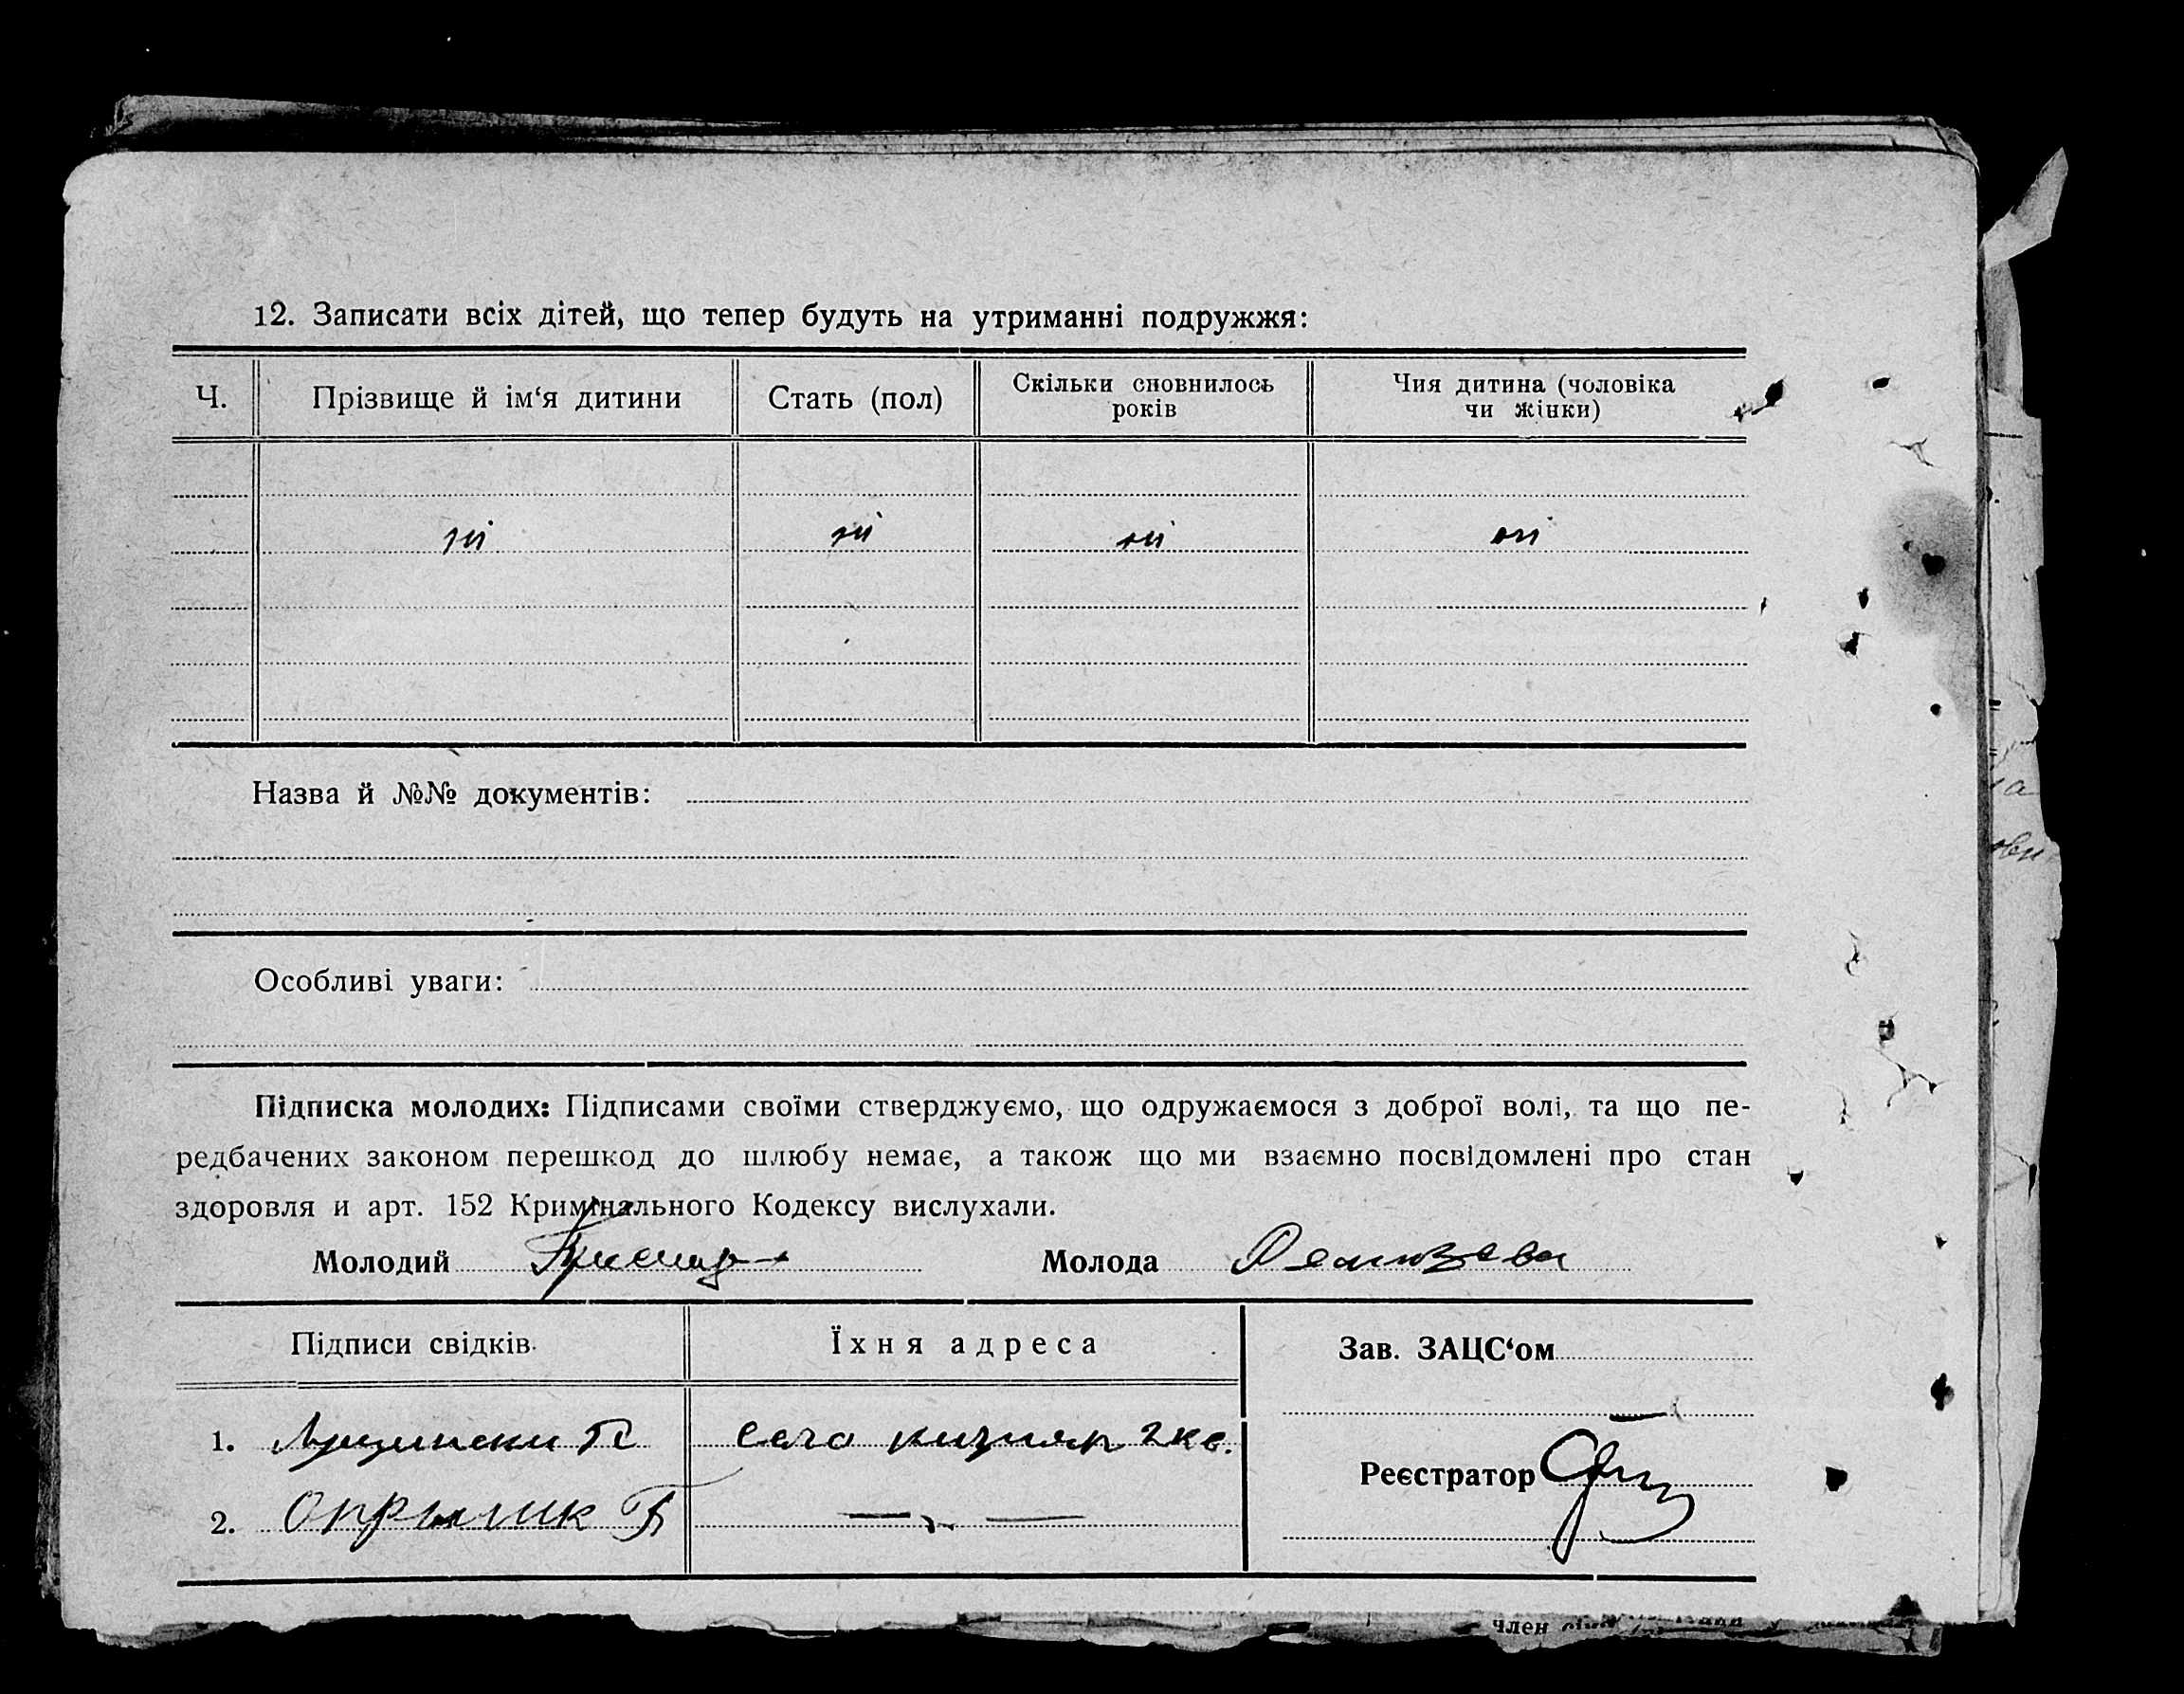 12. Записати всіх дітей, що тепер будуть на утриманні подружжя:
Ч. Прізвище й ім‘я дитини Стать (пол) Скільки сповнилось років Чия дитина (чоловіка чи жінки)
ні ні ні ні
Назва й №№ документів:
Особливі уваги:
Підписка молодих: Підписами своїми стверджуємо, що одружаємося з доброї волі, та що пе-
редбачених законом перешкод до шлюбу немає, а також що ми взаємно посвідомлені про стан
здоровля и арт. 152 Кримінального Кодексу вислухали.
Молодий Молода
Підписи свідків Їхня адреса Зав. ЗАЦС‘ом
1. село кизияр 2 кв.
Реєстратор
2. Опрышк Г
член